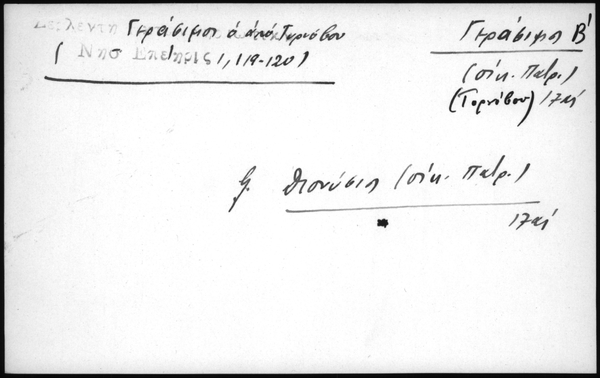 Σειλεντη Γεράσιμος ὁ ἀπό Τυρνόβου
( Νησ Επετηρις 1, 119-120)
Γεράσιμος Β'
(οἰκ. Πατρ.)
(Τορνόβου) 17 αἰ
Διονύσιος (οἰκ. Πατρ.)
17 αἰ